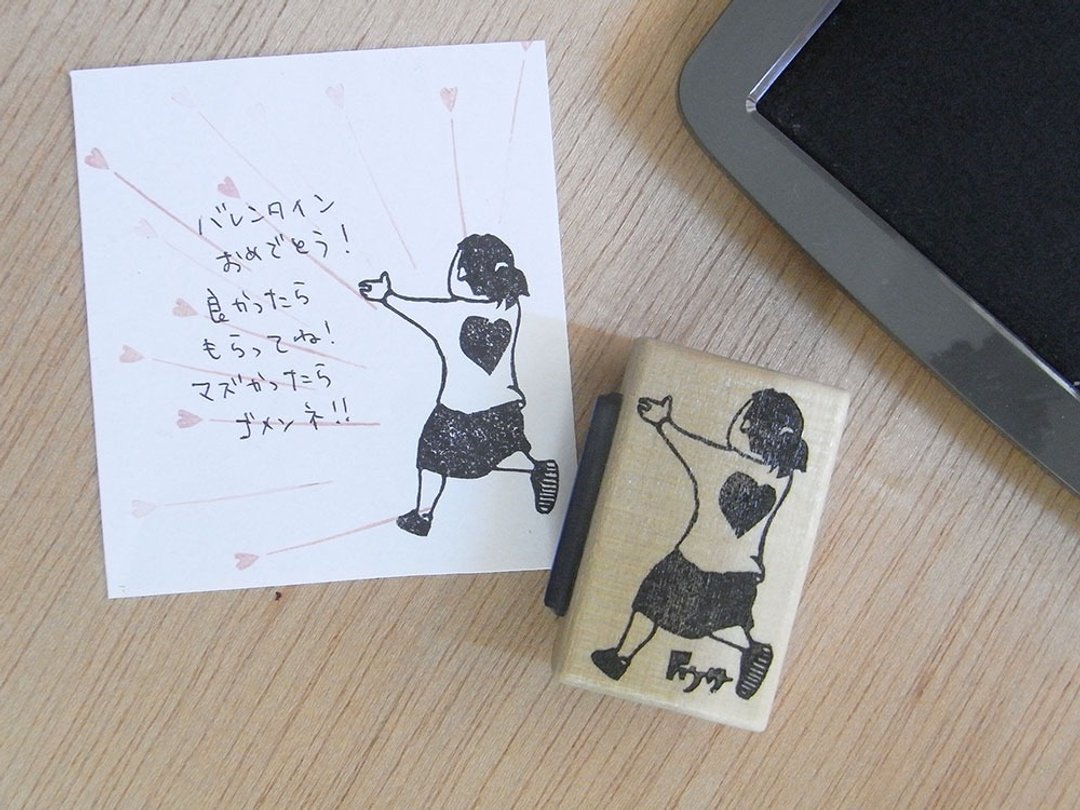 バレンタイン
おめでとう!
良かったら
もらってね!
マズかったら
ゴメンネ!!